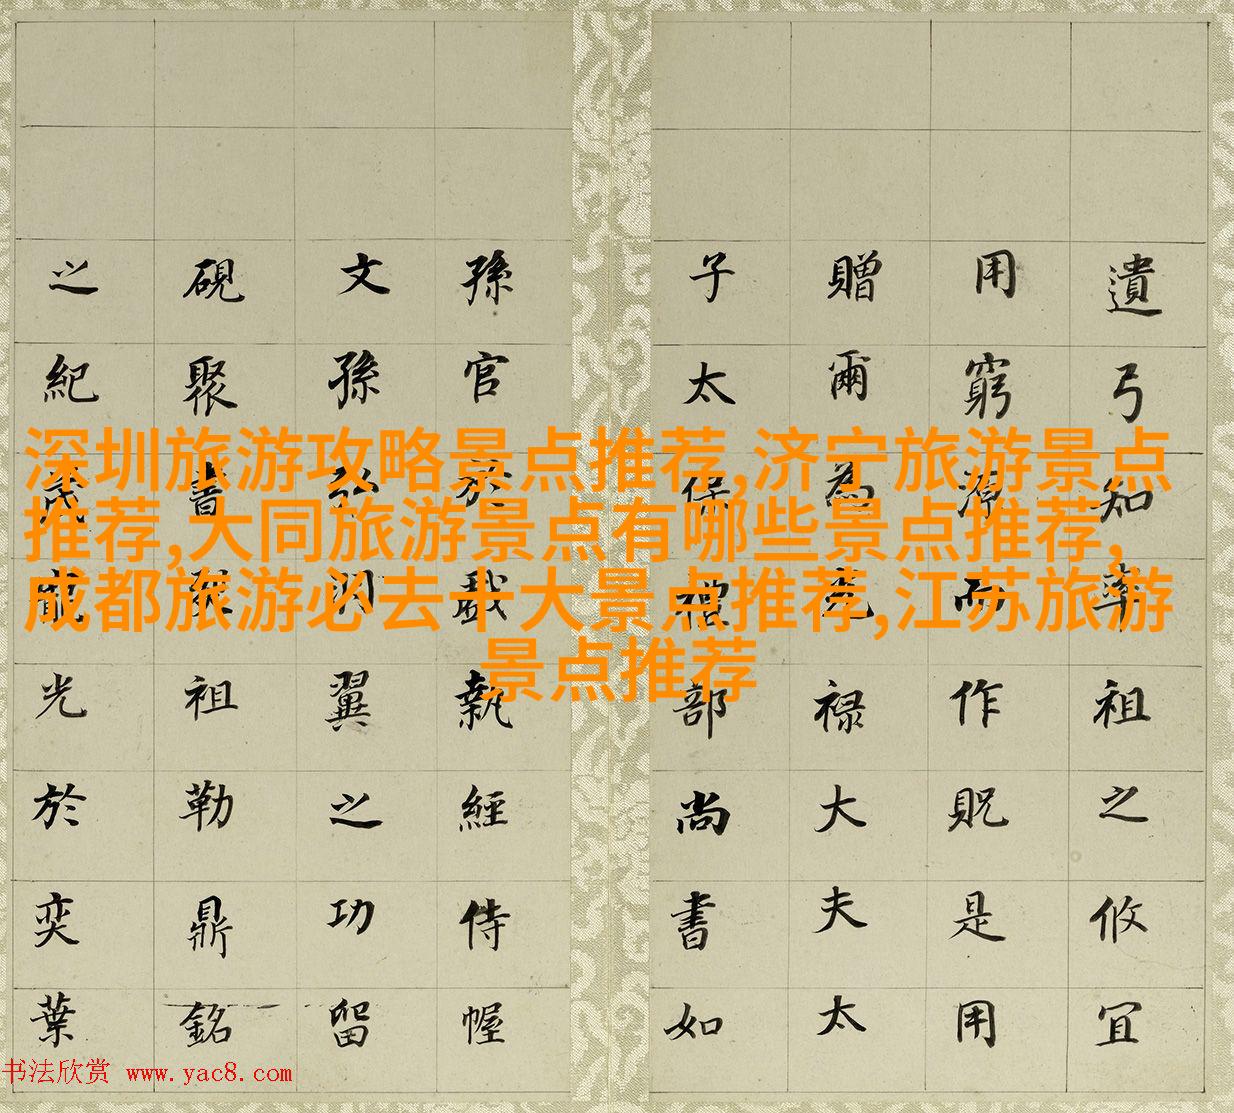 遺弓知率祖之攸宜
用窮源而作貺是用
贈爾為光禄大夫太
子太保禮部尚書如
孫官於戲執經侍幄
文孫弘翼之功留
硯聚書祖勒鼎銘
之紀茂寵光於奕葉
深圳旅游攻略景点推荐,济宁旅游景点
推荐,大同旅游景点有哪些景点推荐,
成都旅游必去十大景点推荐,江苏旅游
景点推荐
书法欣赏 www.yac8.com